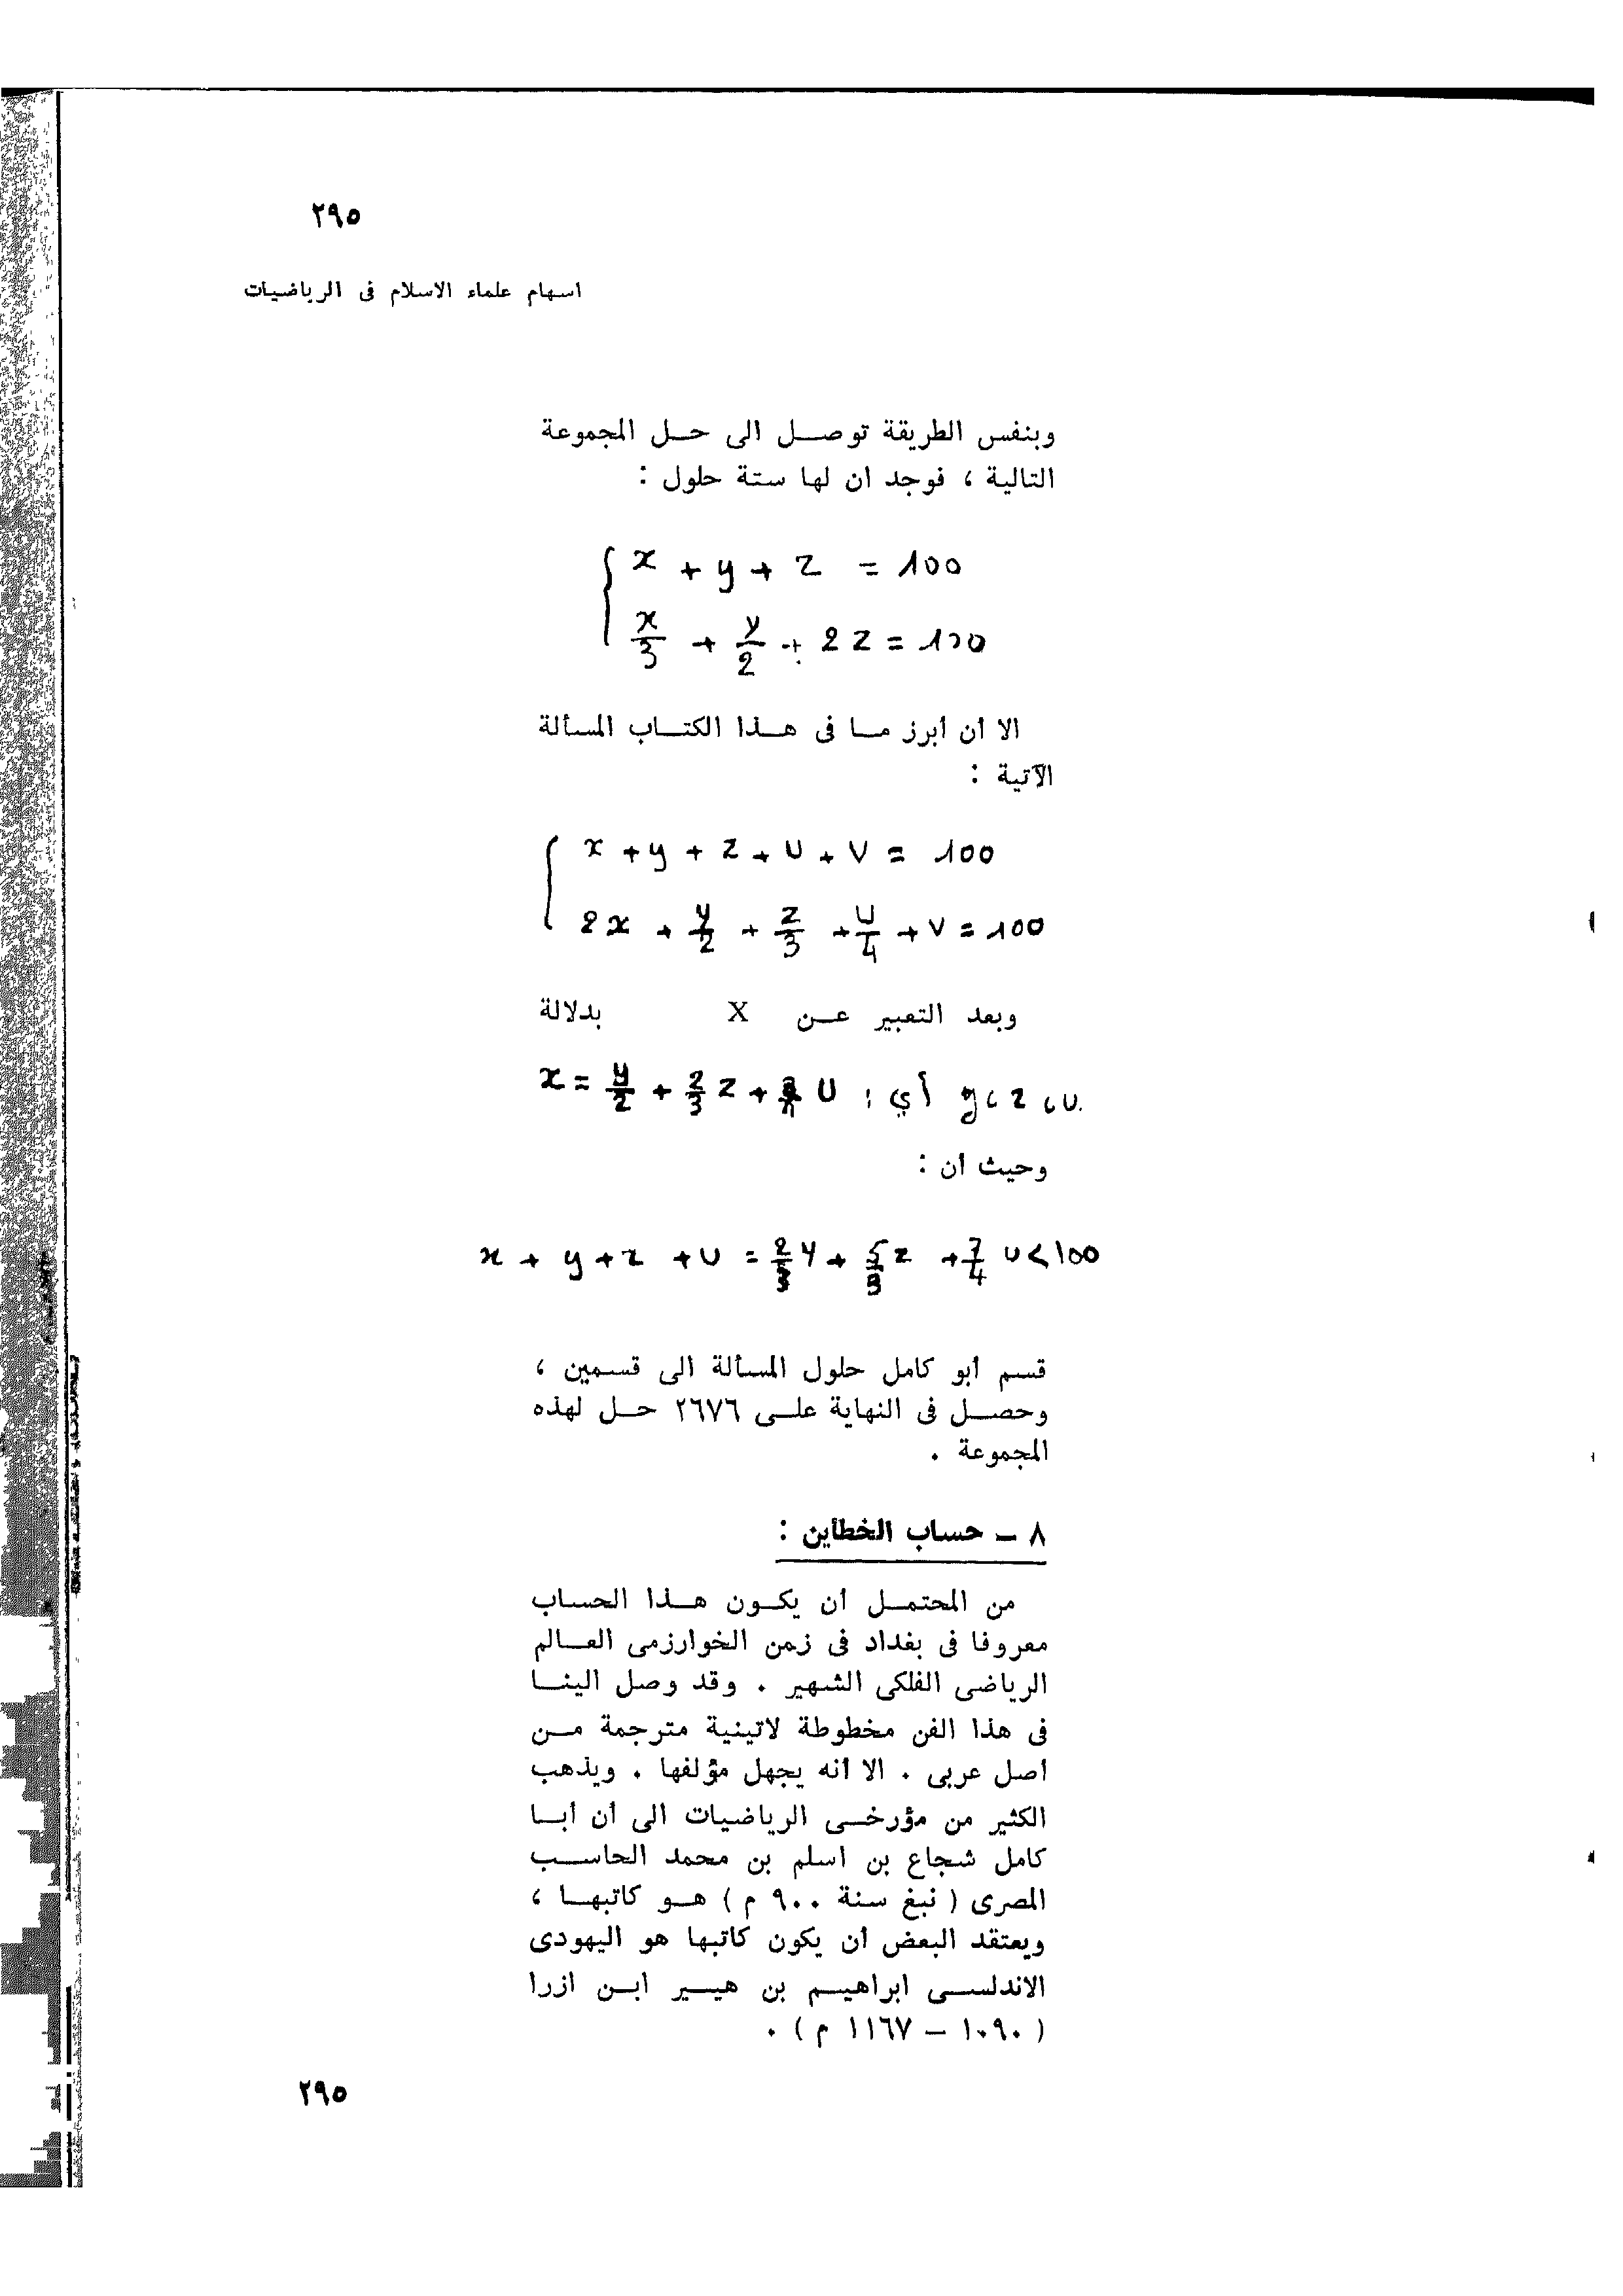 ٢٩٥
اسهام علماء الاسلام فى الرياضيات
وبنفس الطريقة توصل الى حل المجموعة
التالية ، فوجد ان لها ستة حلول :
x + y + z = 100
x/3 + y/2 + 2z = 100
الا أن أبرز ما فى هذا الكتاب المسألة
الآتية :
x + y + z + u + v = 100
2x + y/2 + z/3 + u/4 + v = 100
وبعد التعبير عن X بدلالة
y ، z ، u أي : x = y/2 + 2/3 z + 3/4 u
وحيث ان :
x + y + z + u = 2/3 y + 5/3 z + 7/4 u < 100
قسم أبو كامل حلول المسألة الى قسمين ،
وحصل فى النهاية على ٢٦٧٦ حل لهذه
المجموعة .
٨ - حساب الخطاين :
من المحتمل أن يكون هذا الحساب
معروفا فى بغداد فى زمن الخوارزمى العالم
الرياضى الفلكى الشهير . وقد وصل الينا
فى هذا الفن مخطوطة لاتينية مترجمة من
أصل عربى . الا أنه يجهل مؤلفها . ويذهب
الكثير من مؤرخى الرياضيات الى أن أبا
كامل شجاع بن اسلم بن محمد الحاسب
المصرى ( نبغ سنة ٩٠٠ م ) هو كاتبها ،
ويعتقد البعض أن يكون كاتبها هو اليهودى
الاندلسى ابراهيم بن هيير ابن ازرا
( ١٠٩٠ - ١١٦٧ م ) .
٢٩٥